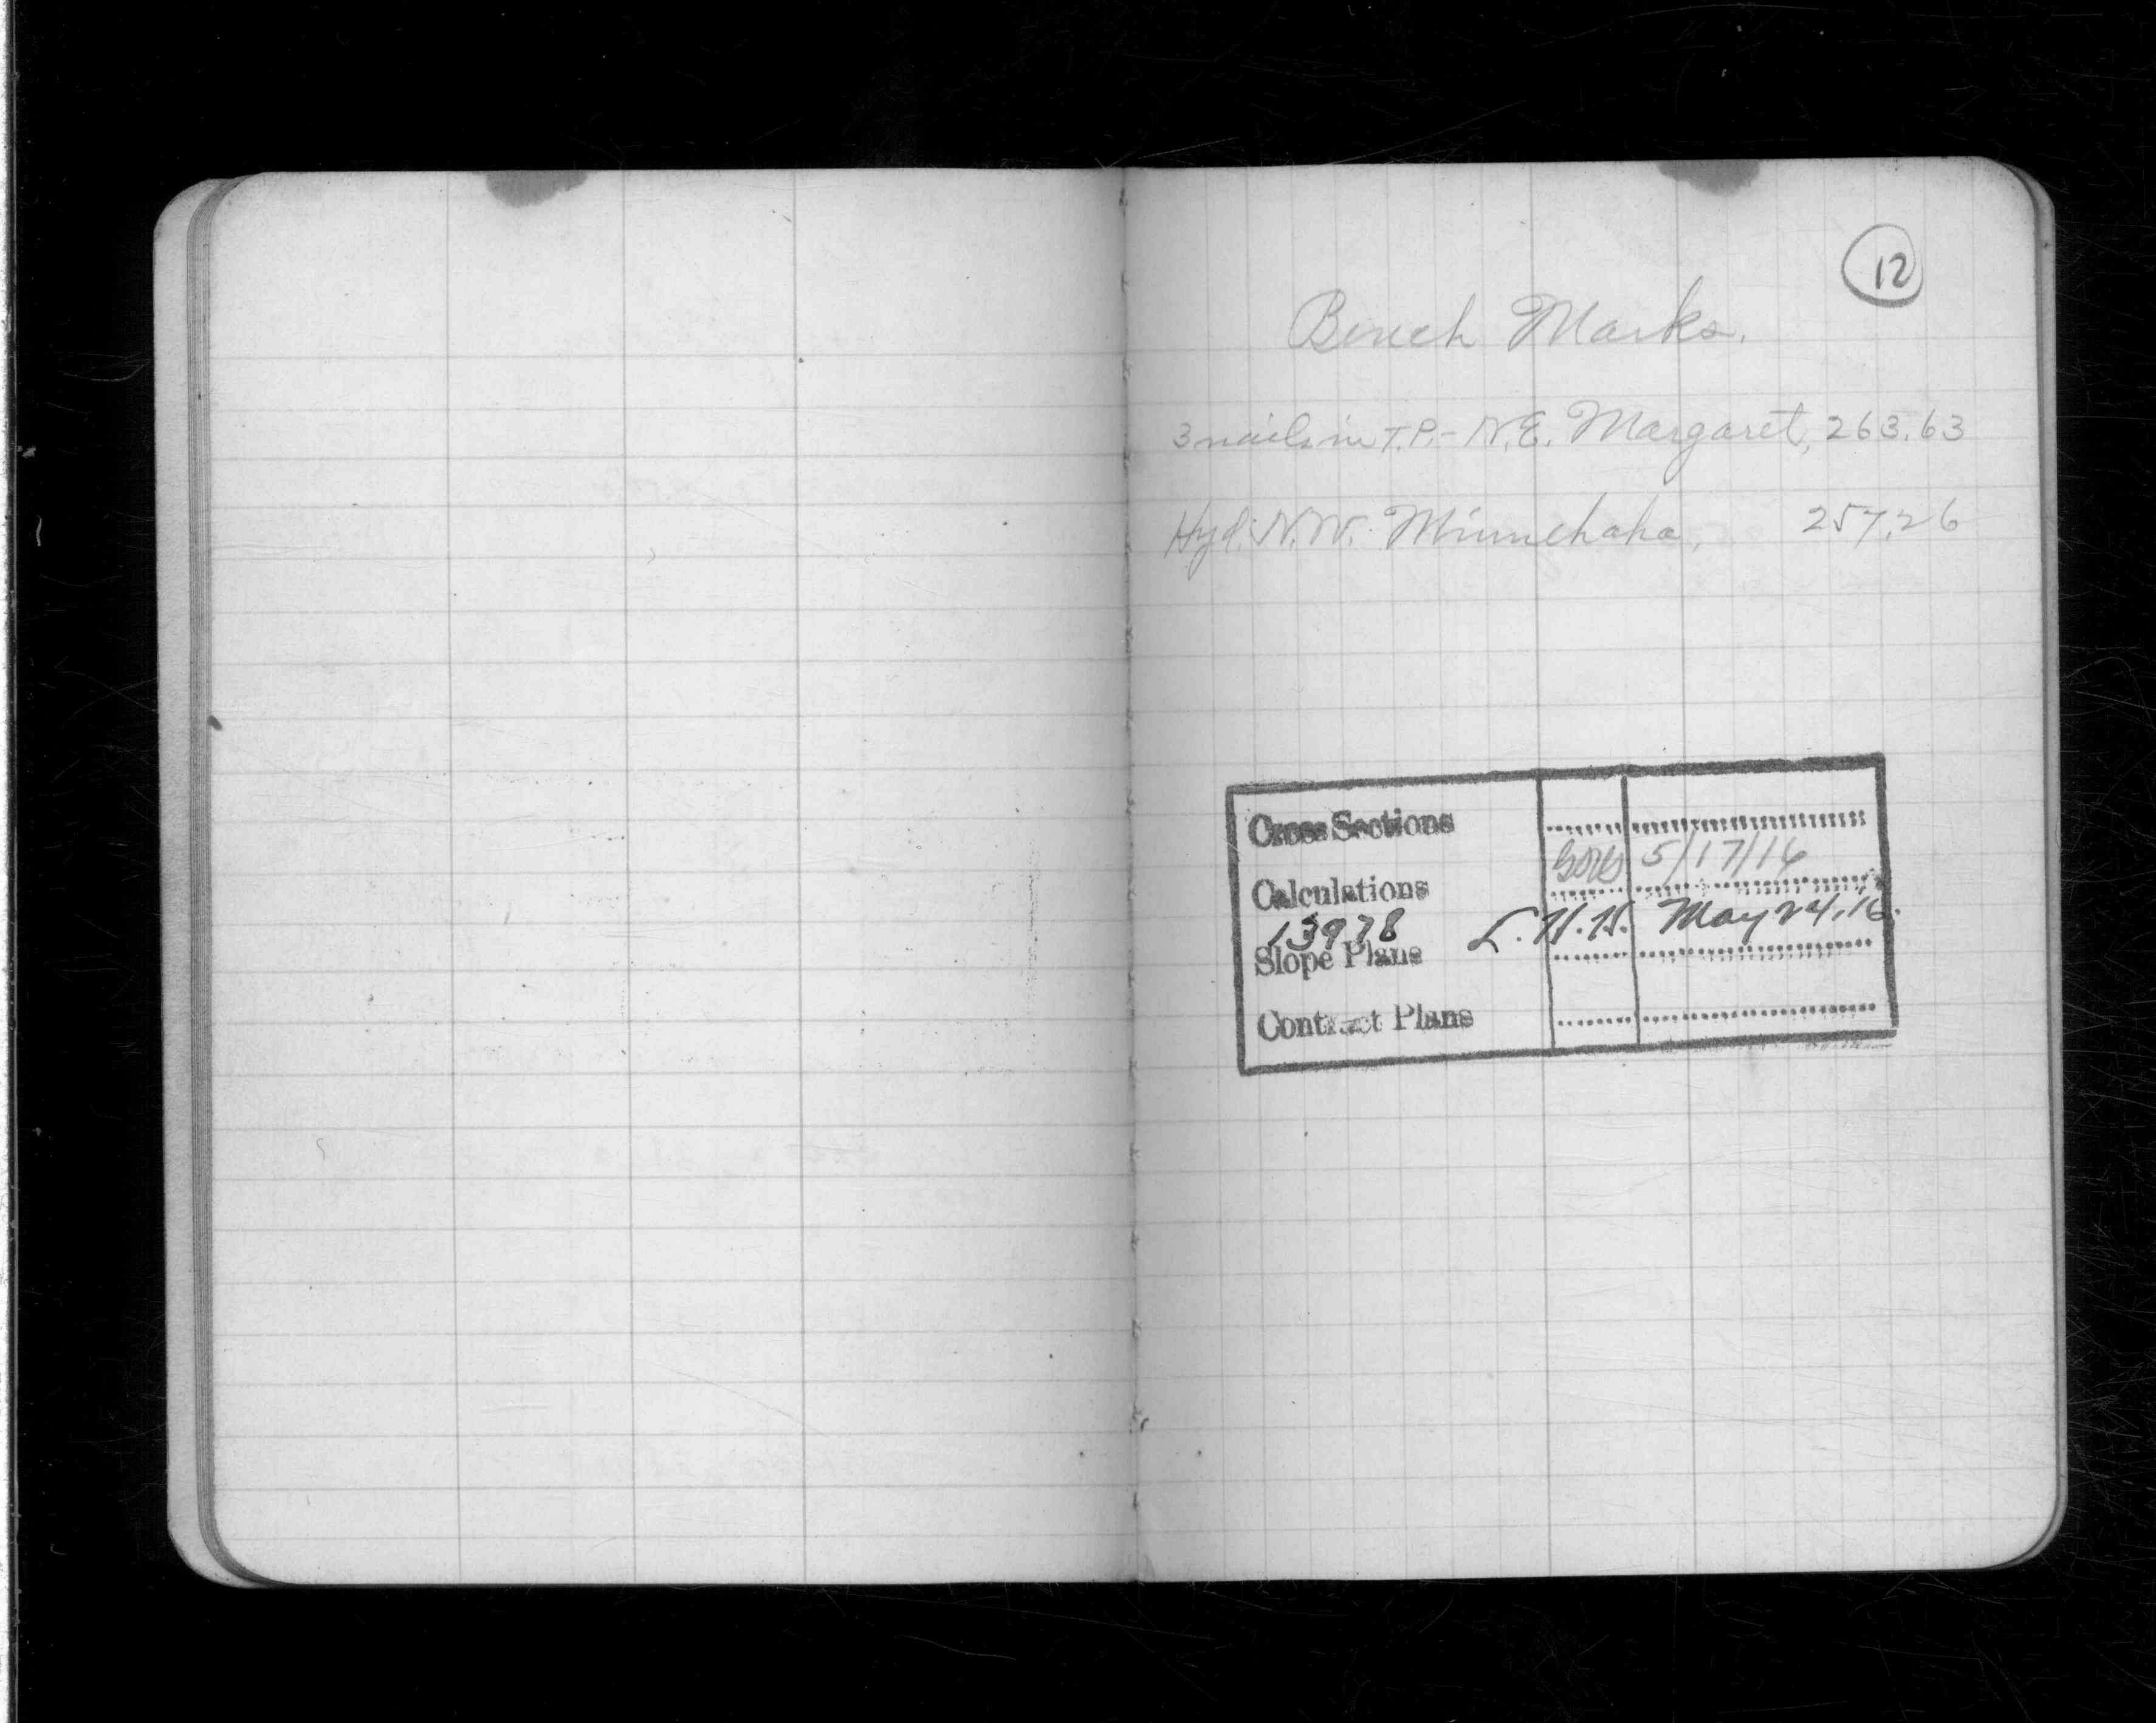 12
Bench Marks.
3 nails in T.P.- N.E. Margaret, 263.63
Hyd. N.W. Minnehaha, 257.26
Cross Sections
Calculations 5/17/16
13978 L.H.H. May 24, 16.
Slope Plans
Contract Plans